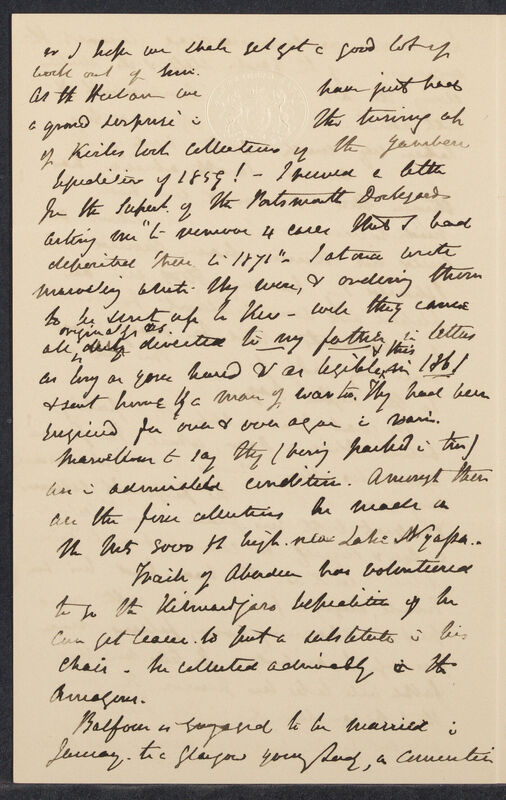 or I hope we shall yet get a good lot of
work out of him.
As the Herbarium we have just had
a grand surprise in the turning up
of Kirk's lost collections of the Zambesi
Expedition of 1859! - I received a letter
from the Supert. of the Portsmouth Dockyards
asking me "to remove 4 cases that I had
deposited there in 1871" - I at once wrote
marvelling what they were, & ordering them
to be sent up to Kew - well they came
all, originally directed to my father in letters
as long as your hand & as legible, & this in 186!
& sent home by a man of war too. They had been
enquired for over & over again in vain.
Marvellous to say they (being packed in tin)
are in admirable condition. Amongst them
are the fine collections he made on
the Mts 5000 ft high near Lake Nyassa.
Trail of Aberdeen has volunteered
to go the Kilimandjaro Expedition if he
can get leave to put a substitute in his
chair - he collected admirably in the
Amazons.
Balfour is engaged to be married in
January to a Glasgow young lady, a connection